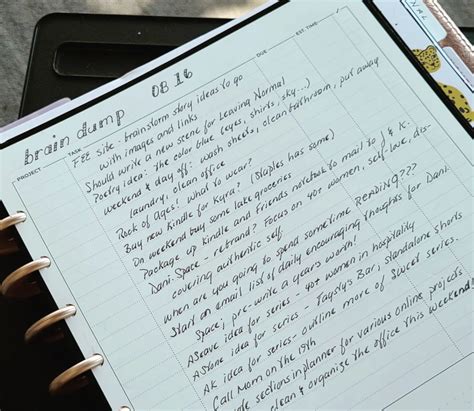 NAL
brain dump 08.16
PROJECT TASK DUE EST. TIME
FEE site - brainstorm story ideas to go
with images and links
Should write a new scene for Leaving Normal
Poetry idea: the color blue (eyes, shirts, sky...)
Weekend & day off: wash sheets, clean bathroom, put away
laundry, clean office
Rock of Ages! what to wear?
Buy new Kindle for Kyra? (Staples has some)
On weekend buy some lake groceries
Package up Kindle and Friends notebook to mail to J & K.
Dani. Space - rebrand? Focus on 40+ women, self love, dis-
covering authentic self
When are you going to spend sometime READING???
Start an email list of daily encouraging thoughts for Dani.
Space; pre-write a year's worth!
ASeave idea for series - 40+ women in hospitality
AStone idea for series - Bar, standalone shorts
AK idea for series - outline more of Sweet series.
Call Mom on the 19th
sections in planner for various online projects
clean & organise the office this weekend!